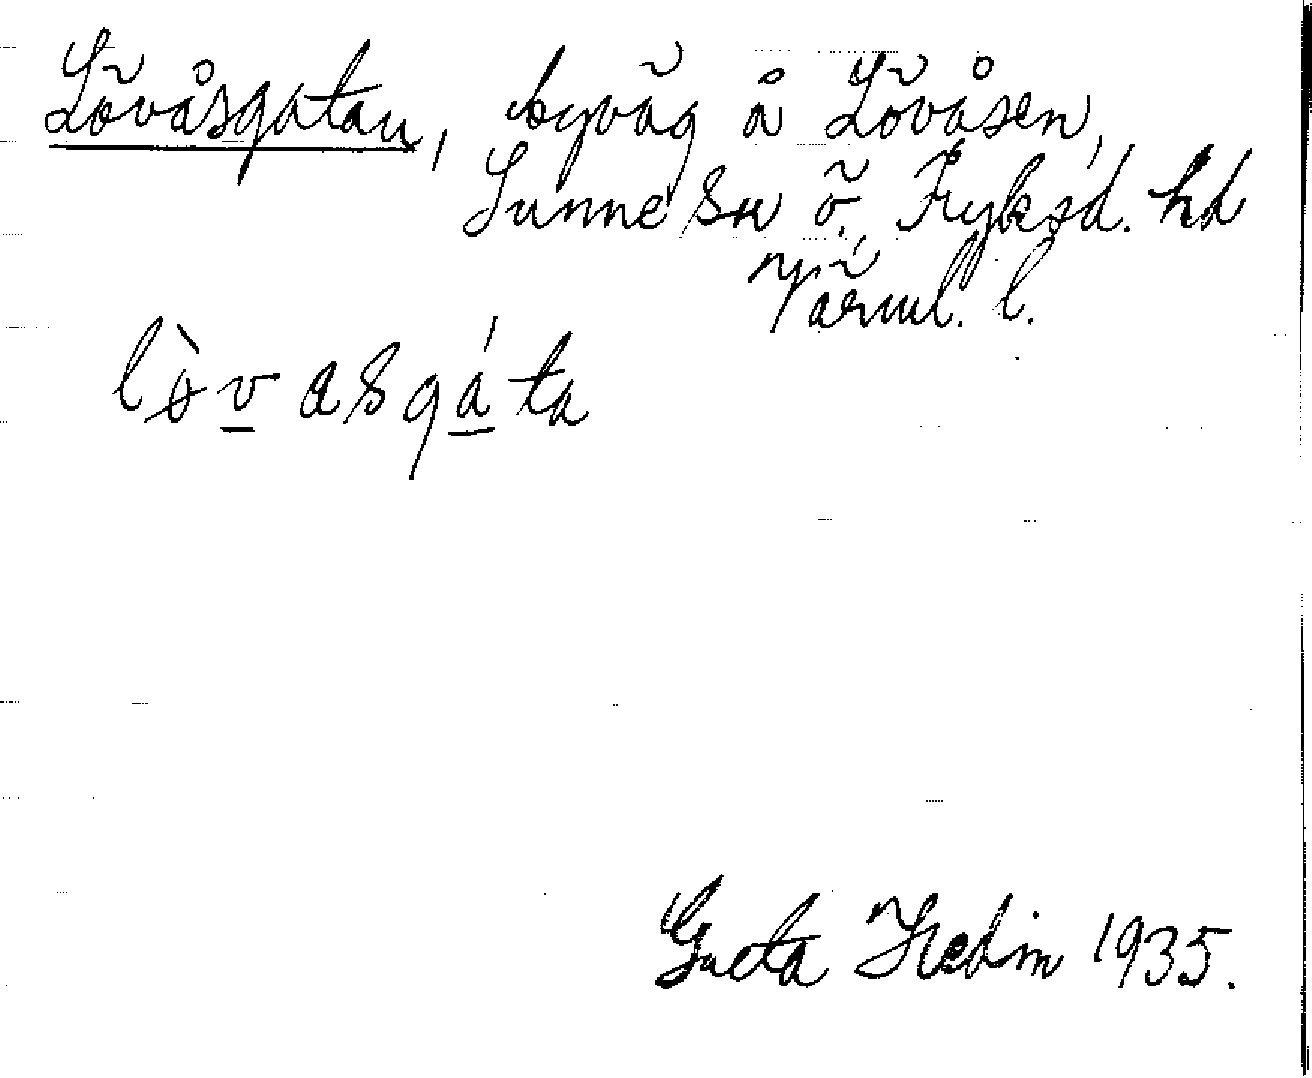 Lövåsgatan, byväg å Lövåsen,
Sunne sn Ö. Fryksd. hd
Värml. l.
lòvasgáta
Greta Hedin 1935.